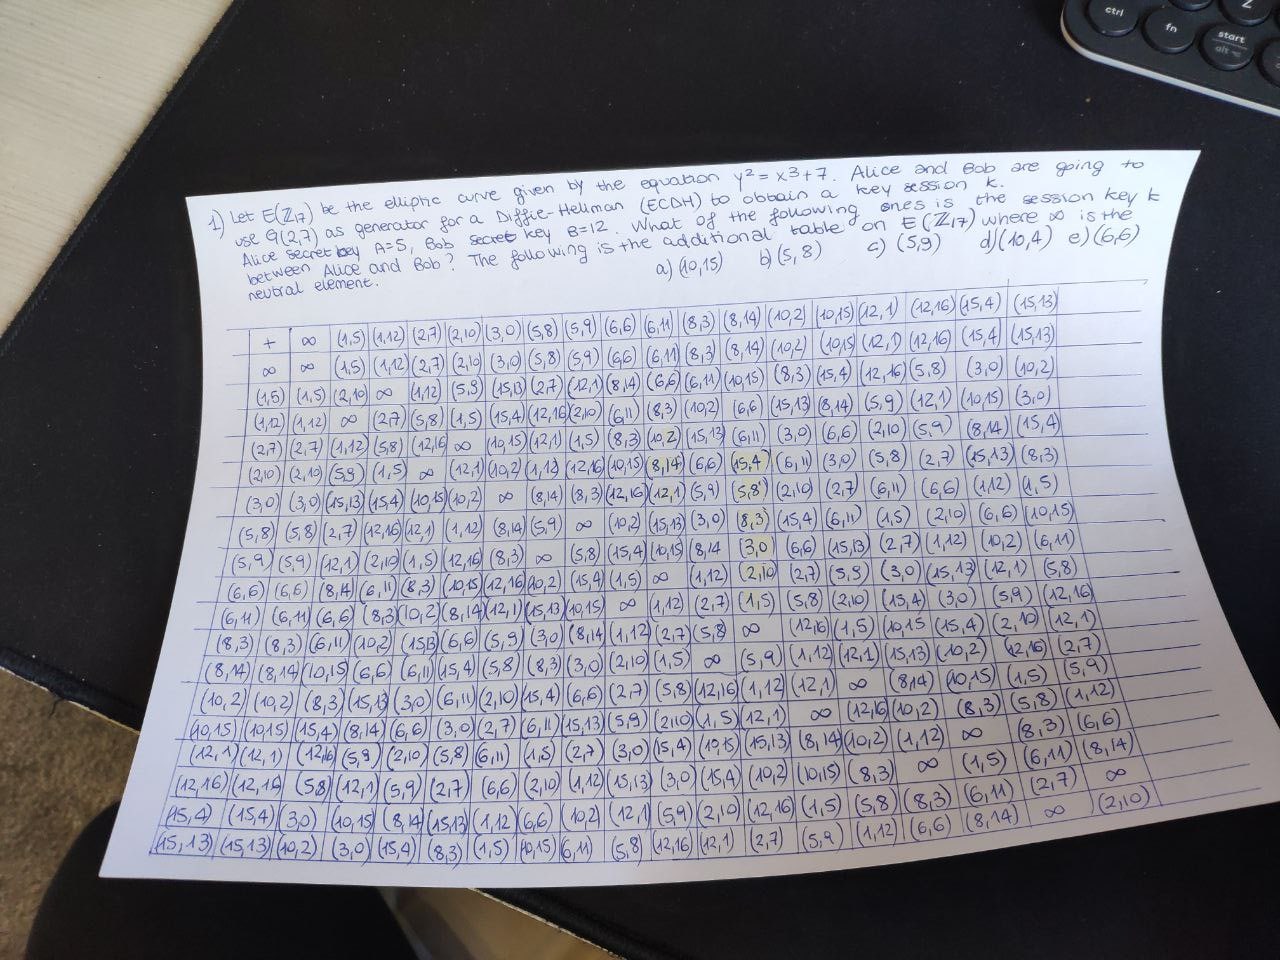 ctrl
fn
start
alt
Z
1) Let E(Z17) be the elliptic curve given by the equation y² = x³+7. Alice and Bob are going to
use G(2,7) as generator for a Diffie-Hellman (ECDH) to obtain a key session k.
Alice secret key A=5, Bob secret key B=12. What of the following ones is the session key k
between Alice and Bob? The following is the additional table on E(Z17) where ∞ is the
neutral element. a) (10,15) b) (5,8) c) (5,9) d) (10,4) e) (6,6)
+ ∞ (1,5) (1,12) (2,7) (2,10) (3,0) (5,8) (5,9) (6,6) (6,11) (8,3) (8,14) (10,2) (10,15) (12,1) (12,16) (15,4) (15,13)
∞ ∞ (1,5) (1,12) (2,7) (2,10) (3,0) (5,8) (5,9) (6,6) (6,11) (8,3) (8,14) (10,2) (10,15) (12,1) (12,16) (15,4) (15,13)
(1,5) (1,5) (2,10) ∞ (1,12) (5,9) (15,13) (2,7) (12,1) (8,14) (6,6) (6,11) (10,15) (8,3) (15,4) (12,16) (5,8) (3,0) (10,2)
(1,12) (1,12) ∞ (2,7) (5,8) (1,5) (15,4) (12,16) (2,10) (6,11) (8,3) (10,2) (6,6) (15,13) (8,14) (5,9) (12,1) (10,15) (3,0)
(2,7) (2,7) (1,12) (5,8) (12,16 ∞ (10,15) (12,1) (1,5) (8,3) (10,2) (15,13) (6,11) (3,0) (6,6) (2,10) (5,9) (8,14) (15,4)
(2,10) (2,10) (5,9) (1,5) ∞ (12,1) (10,2) (1,12) (12,16) (10,15) (8,14) (6,6) (15,4) (6,11) (3,0) (5,8) (2,7) (15,13) (8,3)
(3,0) (3,0) (15,13) (15,4) (10,15) (10,2) ∞ (8,14) (8,3) (12,16) (12,1) (5,9) (5,8) (2,10) (2,7) (6,11) (6,6) (1,12) (1,5)
(5,8) (5,8) (2,7) (12,16) (12,1) (1,12) (8,14) (5,9) ∞ (10,2) (15,13) (3,0) (8,3) (15,4) (6,11) (1,5) (2,10) (6,6) (10,15)
(5,9) (5,9) (12,1) (2,10) (1,5) (12,16) (8,3) ∞ (5,8) (15,4) (10,15) (8,14 (3,0) (6,6) (15,13) (2,7) (1,12) (10,2) (6,11)
(6,6) (6,6) (8,14) (6,11) (8,3) (10,15) (12,16) (10,2) (15,4) (1,5) ∞ (1,12) (2,10) (2,7) (5,9) (3,0) (15,13) (12,1) (5,8)
(6,11) (6,11) (6,6) (8,3) (10,2) (8,14) (12,1) (15,13) (10,15) ∞ (1,12) (2,7) (1,5) (5,8) (2,10) (15,4) (3,0) (5,9) (12,16)
(8,3) (8,3) (6,11) (10,2) (15,13) (6,6) (5,9) (3,0) (8,14 (1,12) (2,7) (5,8) ∞ (12,16) (1,5) (10,15 (15,4) (2,10) (12,1)
(8,14) (8,14) (10,15) (6,6) (6,11) (15,4) (5,8) (8,3) (3,0) (2,10) (1,5) ∞ (5,9) (1,12) (12,1) (15,13) (10,2) (12,16) (2,7)
(10,2) (10,2) (8,3) (15,13) (3,0) (6,11) (2,10) (15,4) (6,6) (2,7) (5,8) (12,16) (1,12) (12,1) ∞ (8,14) (10,15) (1,5) (5,9)
(10,15) (10,15) (15,4) (8,14) (6,6) (3,0) (2,7) (6,11) (15,13) (5,9) (2,10) (1,5) (12,1) ∞ (12,16 (10,2) (8,3) (5,8) (1,12)
(12,1) (12,1) (12,16) (5,9) (2,10) (5,8) (6,11) (1,5) (2,7) (3,0) (15,4) (10,15) (15,13) (8,14 (10,2) (1,12) ∞ (8,3) (6,6)
(12,16) (12,16) (5,8) (12,1) (5,9) (2,7) (6,6) (2,10) (1,12) (15,13) (3,0) (15,4) (10,2) (10,15) (8,3) ∞ (1,5) (6,11) (8,14)
(15,4) (15,4) (3,0) (10,15) (8,14) (15,13) (1,12) (6,6) (10,2) (12,1) (5,9) (2,10) (12,16) (1,5) (5,8) (8,3) (6,11) (2,7) ∞
(15,13) (15,13) (10,2) (3,0) (15,4) (8,3) (1,5) (10,15) (6,11) (5,8) (12,16) (12,1) (2,7) (5,9) (1,12) (6,6) (8,14) ∞ (2,10)